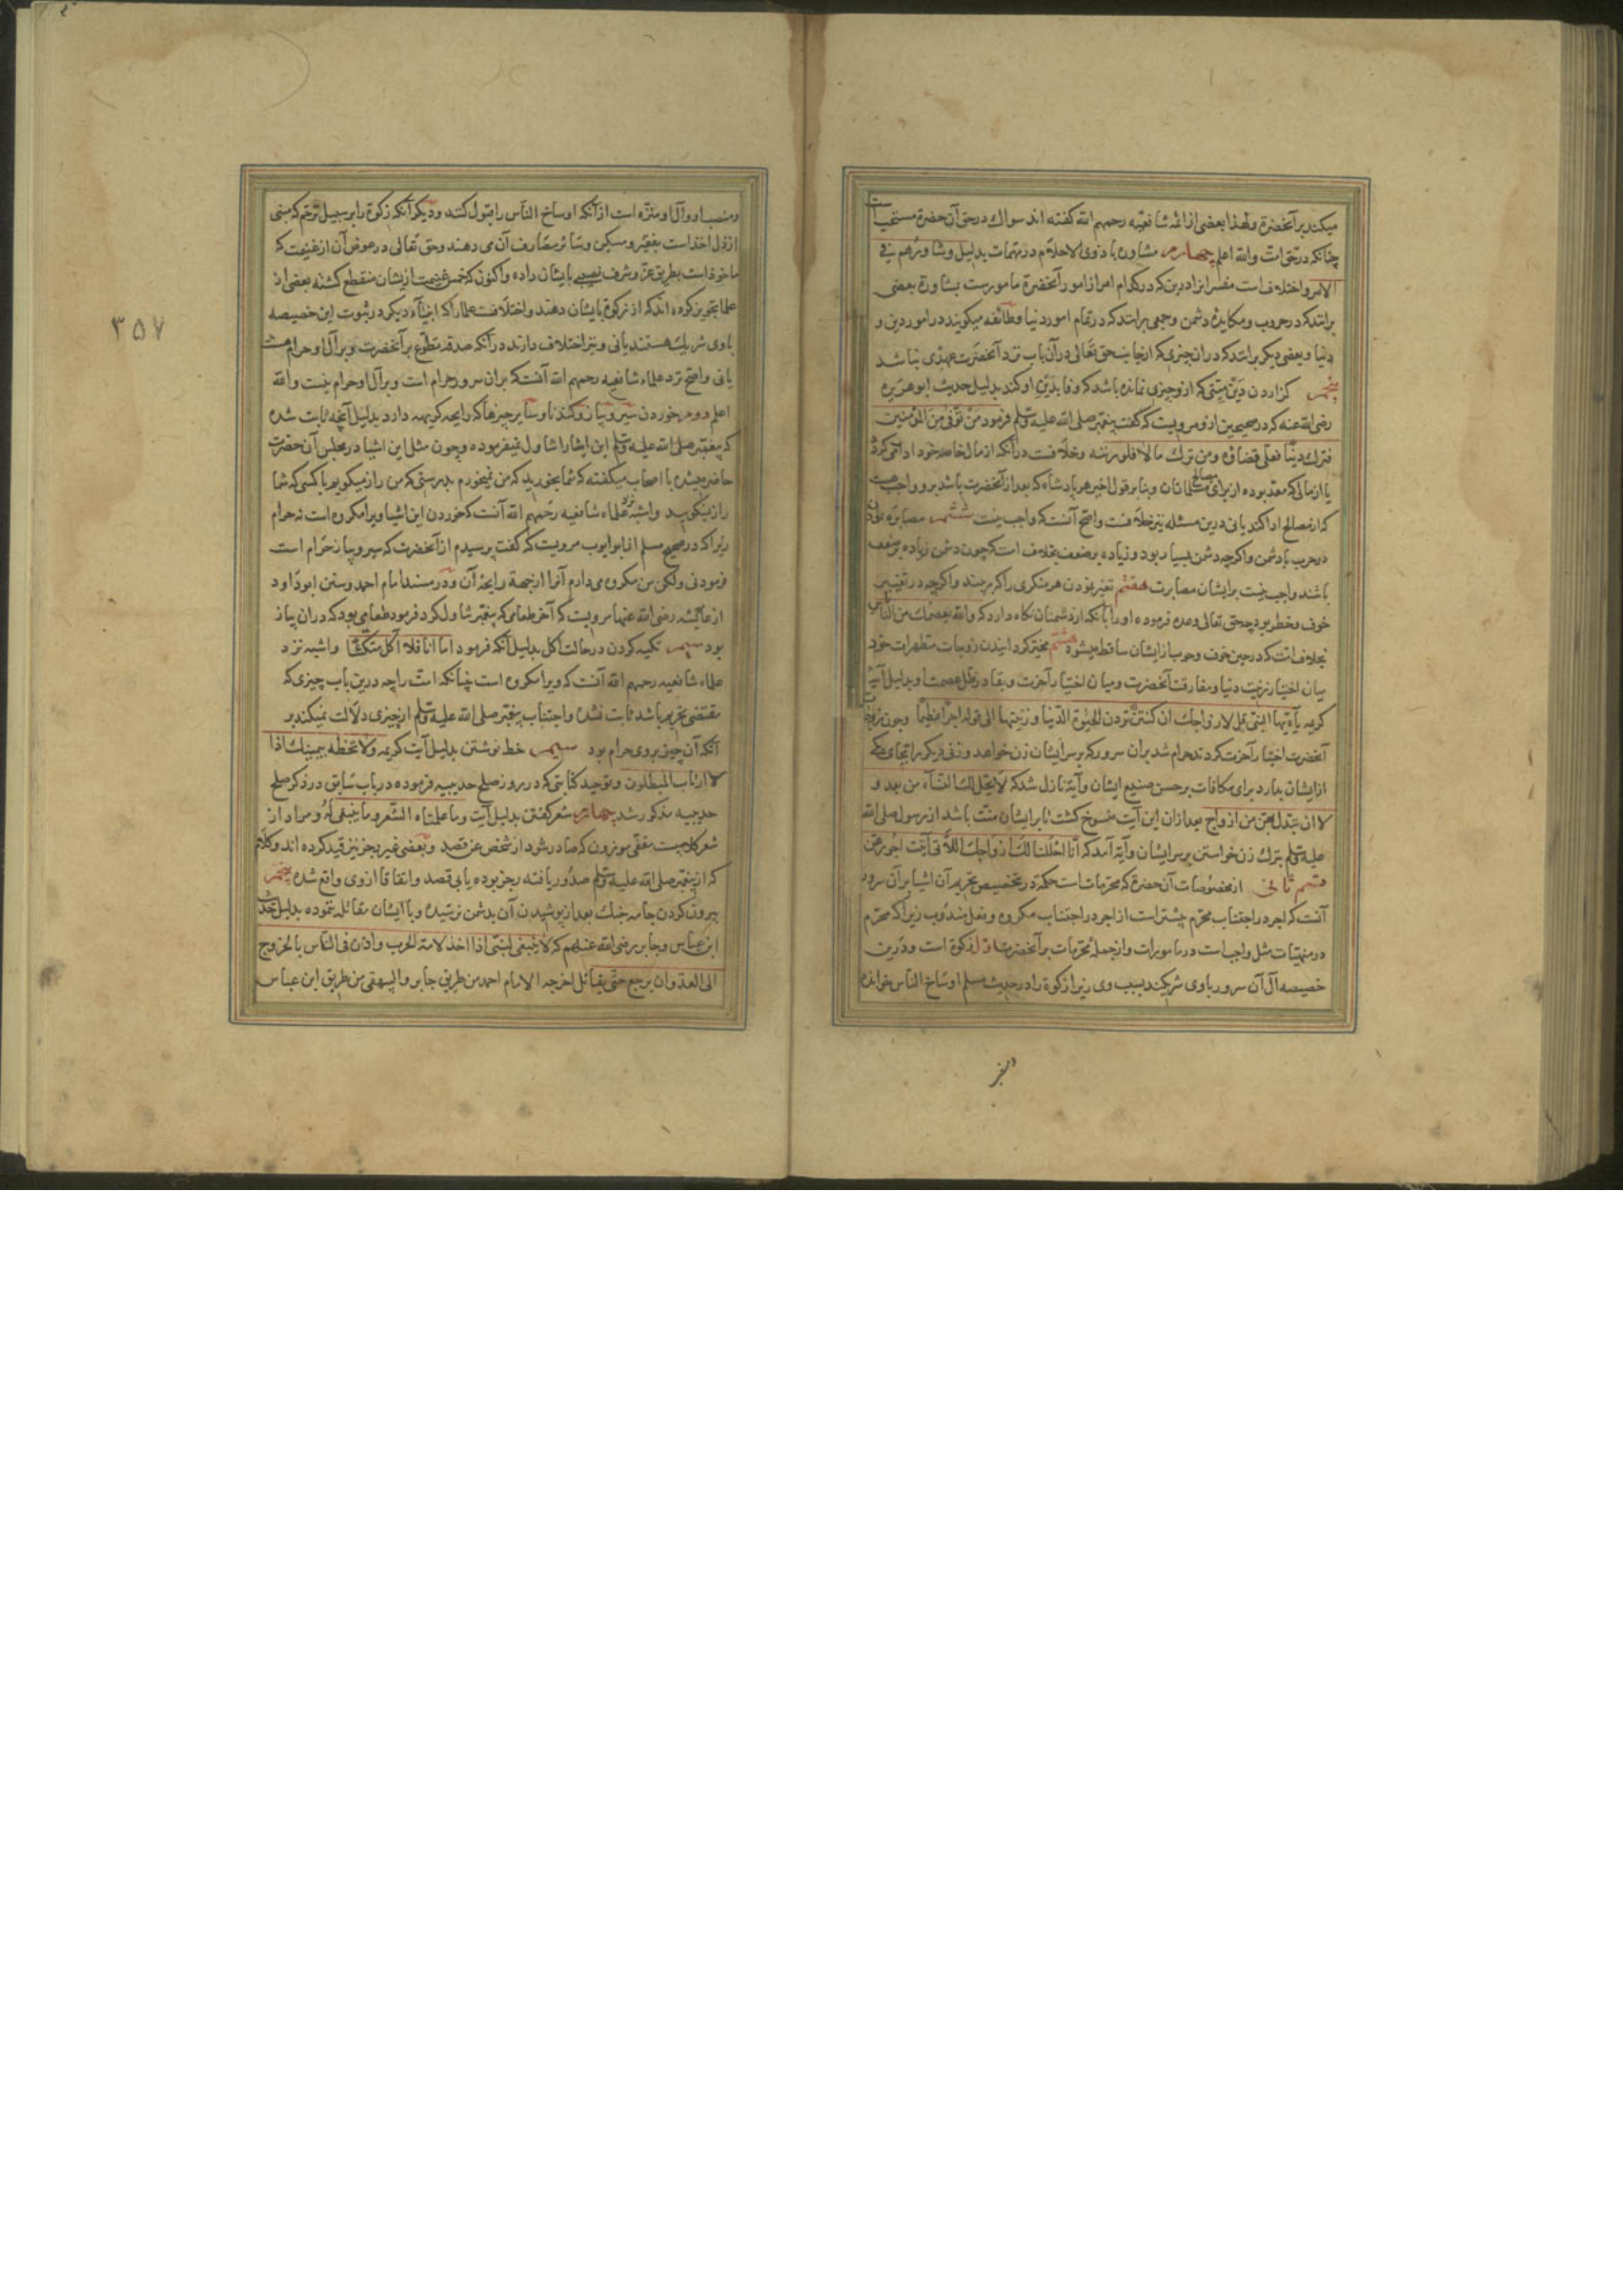 میکند بر آنحضرة ولهذا بعضی از ائمۀ شافعیه رحمهم الله گفته اند سواك در حق آن حضرة مستحب است
چنانکه در حق امت والله اعلم چهارم مشاوره با ذوی الاحلام در مهمات بدلیل وشاورهم فی
الامر واختلافست مفسرانرا درین که در کدام امر از امور آنحضرة مامورست بمشاورة بعضی
برانند که در حروب ومکایدۀ دشمن وجمعی برانند که در تمام امور دنیا وطائفه میگویند در امور دین و
دنیا وبعضی دیگر برانند که در ان چیزی که از جانب حق تعالی در آن باب نزد آنحضرت عهدی نباشد
پنجم گزاردن دین میتی که ازو چیزی نمانده باشد که وفا بدین او کند بدلیل حدیث ابوهریره
رضی الله عنه که در صحیحین ازو مرویست که گفت پیغمبر صلی الله علیه وسلم فرمود من توفی من المؤمنین
فترك دینا فعلی قضاؤه ومن ترك مالا فلورثته وخلافست در آنکه از مال خاصه خود ادا می کرد
یا از مالی که معد بوده از برای مصالح مسلمانان وبنا بر قول اخیر هر پادشاه که بعد از آنحضرت باشد برو واجب هست
که از مصالح ادا کند یا نی درین مسئله نیز خلافست واصح آنست که واجب نیست ششم مصابره نمودن
در حرب با دشمن واگرچه دشمن بسیار بود وزیاده بر ضعف بخلاف امت که چون دشمن زیاده بر ضعف
باشند واجب نیست برایشان مصابرت هفتم تغیر نمودن هر منکری را که بیند واگرچه در تغییر
خوف وخطر بود چه حق تعالی وعده فرموده او را بآنکه از دشمنان نگاه دارد که والله یعصمك من الناس
بخلاف امت که در حین خوف وجوب از ایشان ساقط میشود هشتم مخیر گردانیدن زوجات مطهرات خود
میان اختیار زینت دنیا ومفارقت آنحضرت ومیان اختیار آخرت وبقا در ظل عصمت او بدلیل آیة
کریمه یآ ایها النبی قل لازواجك ان کنتن تردن الحیوة الدنیا وزینتها الی قوله اجرا عظیما وچون زوجات
آنحضرت اختیار آخرت کردند حرام شد بر ان سرور که بر سر ایشان زن خواهد وزنی دیگر را بجای یکی
از ایشان بدارد برای مکافات بر حسن صنیع ایشان وآیة نازل شد که لا یحل لك النسآء من بعد و
لا ان تبدل بهن من ازواج بعد از ان این آیت منسوخ گشت تا بر ایشان منت باشد از رسول صلی الله
علیه وسلم بترك زن خواستن بر سر ایشان وآیة آمد که انا احللنا لك ازواجك اللاتی آتیت اجورهن
قسم ثانی از مخصوصات آن حضرة که محرماتست حکمة در تخصیص تحریم آن اشیا بر آن سرور
آنست که اجر در اجتناب محرم بیشتر است از اجر در اجتناب مکروه وفعل مندوب زیرا که محرم
در منهیات مثل واجب است در مامورات واز جمله محرمات بر آنحضرت اول زکوة است ودرین
خصیصه آل آن سرور با وی شریکند بسبب وی زیرا زکوة را در حدیث مسلم اوساخ الناس خوانده
ومنصب او وآل او منزه است از آنکه اوساخ الناس را قبول کنند ودیگر آنکه زکوة را بر سبیل ترحم که مبنی
از ذل اخذ است بفقیر ومسکین وسائر مصارف آن می دهند وحق تعالی در عوض آن از غنیمت که
ماخوذ است بطریق عز وشرف نصیبی بایشان داده واکنون که خمس غنیمت از یشان منقطع گشته بعضی از
علما تجویز کرده اند که از زکوة بایشان دهند واختلافست علما را که انبیآء دیگر در ثبوت این خصیصه
با وی شریك هستند یا نی ونیز اختلاف دارند در آنکه صدقه تطوع بر آنحضرت وبر آل او حرام هست
یا نی واصح نزد علماء شافعیه رحمهم الله آنست که بر ان سرور حرام است وبر آل او حرام نیست والله
اعلم دوم خوردن سیر وپیاز وگندنا وسایر چیزها که رایحه کریهه دارد بدلیل آنچه ثابت شده
که پیغمبر صلی الله علیه وسلم این اشیا را تناول نمیفرموده وچون مثل این اشیا در مجلس آن حضرت
حاضر میشده با اصحاب میگفته که شما بخورید که من نمیخورم بدرستی که من راز میگویم با کسی که شما
راز نمیگویید واشبه نزد علماء شافعیه رحمهم الله آنست که خوردن این اشیا ویرا مکروه است نه حرام
زیرا که در صحیح مسلم از ابو ایوب مرویست که گفت پرسیدم از آنحضرت که سیر وپیاز حرام است
فرمود نی ولکن من مکروه می دارم آنرا از جهة رایحه آن ودر مسند امام احمد وسنن ابو داود
از عائیشه رضی الله عنها مرویست که آخر طعامی که پیغمبر تناول کرد فرمود طعامی بود که در ان پیاز
بود سیم تکیه کردن در حالت اکل بدلیل آنکه فرمود اما انا فلا آکل متکئا واشبه نزد
علماء شافعیه رحمهم الله آنست که ویرا مکروه است چنانکه امت را چه درین باب چیزی که
مقتضی تحریم باشد ثابت نشده واجتناب پیغمبر صلی الله علیه وسلم از چیزی دلالت نمیکند بر
آنکه آن چیز بر وی حرام بود سیم خط نوشتن بدلیل آیت کریمه ولا تخطه بیمینك اذا
لا ارتاب المبطلون وتوجیه کتابتی که در روز صلح حدیبیه فرموده در باب سابق در ذکر صلح
حدیبیه مذکور شد چهارم شعر گفتن بدلیل آیت وما علمناه الشعر وما ینبغی له ومراد از
شعر کلامیست مقفی موزون که صادر شود از شخص عن قصد وبعضی غیر رجز نیز قید کرده اند وکلام
که از پیغمبر صلی الله علیه وسلم صدور یافته رجز بوده یا بی قصد واتفاقا از وی واقع شده پنجم
بیرون کردن جامه جنك بعد از پوشیدن آن بدشمن نرسیده وبا ایشان مقاتله ننموده بدلیل حدیث
ابن عباس وجابر رضی الله عنهم که لا ینبغی لنبی اذا اخذ لامة الحرب واذن فی الناس بالخروج
الی العدو ان یرجع حتی یقاتل اخرجه الامام احمد من طریق جابر والبیهقی من طریق ابن عباس
٣٥٧